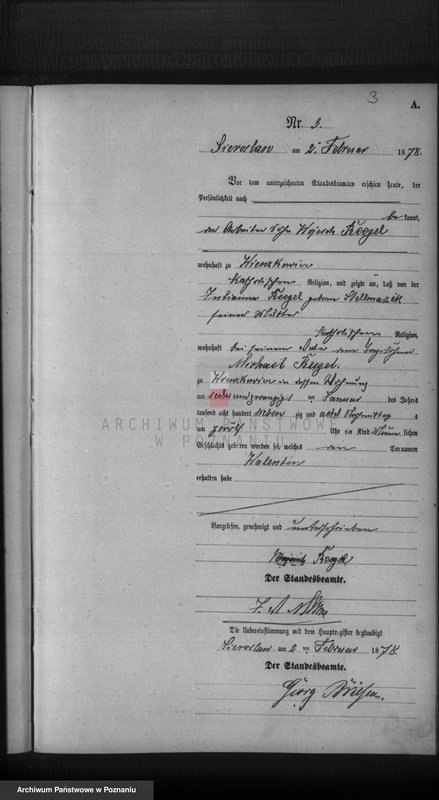 3
A.
Nr. 3.
Sieroslaw am 2. Februar 1878.
Vor dem unterzeichneten Standesbeamten erschien heute, der
Persönlichkeit nach
be kannt,
der Arbeiter Sohn Kregel
wohnhaft zu
katholischen Religion, und zeigte an, daß von der
Julianna Kregel geborne Stellmaszik
seiner Mutter
katholischen Religion,
wohnhaft bei seinem Vater dem Tagelöhner
Michael Kregel.
zu in dessen Wohnung
am sechsundzwanzigst en Januar des Jahres
tausend acht hundert sieben zig und acht Nachmittag s
um zwölf Uhr ein Kind männ lichen
Geschlechts geboren worden sei, welches den Vornamen
Valentin
erhalten habe
Vorgelesen, genehmigt und unterschrieben
Kregel
Der Standesbeamte.
Die Uebereinstimmung mit dem Hauptregister beglaubigt
Sieroslaw am 2 ten Februar 1878.
Der Standesbeamte.
Georg
ARCHIWUM PAŃSTWOWE
W POZNANIU
Archiwum Państwowe w Poznaniu